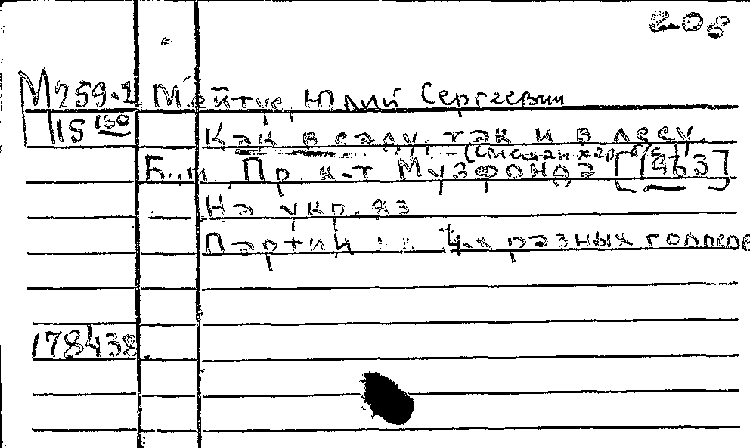 208
М259.2 Мейтус, Юлий Сергеевич
115 150 Как в саду, так и в лесу.
(Смешан. хор б/с)
Б.м. Пр. к-т Музфонда [1963]
На укр. яз
Партии 4-х разных голосов
178438